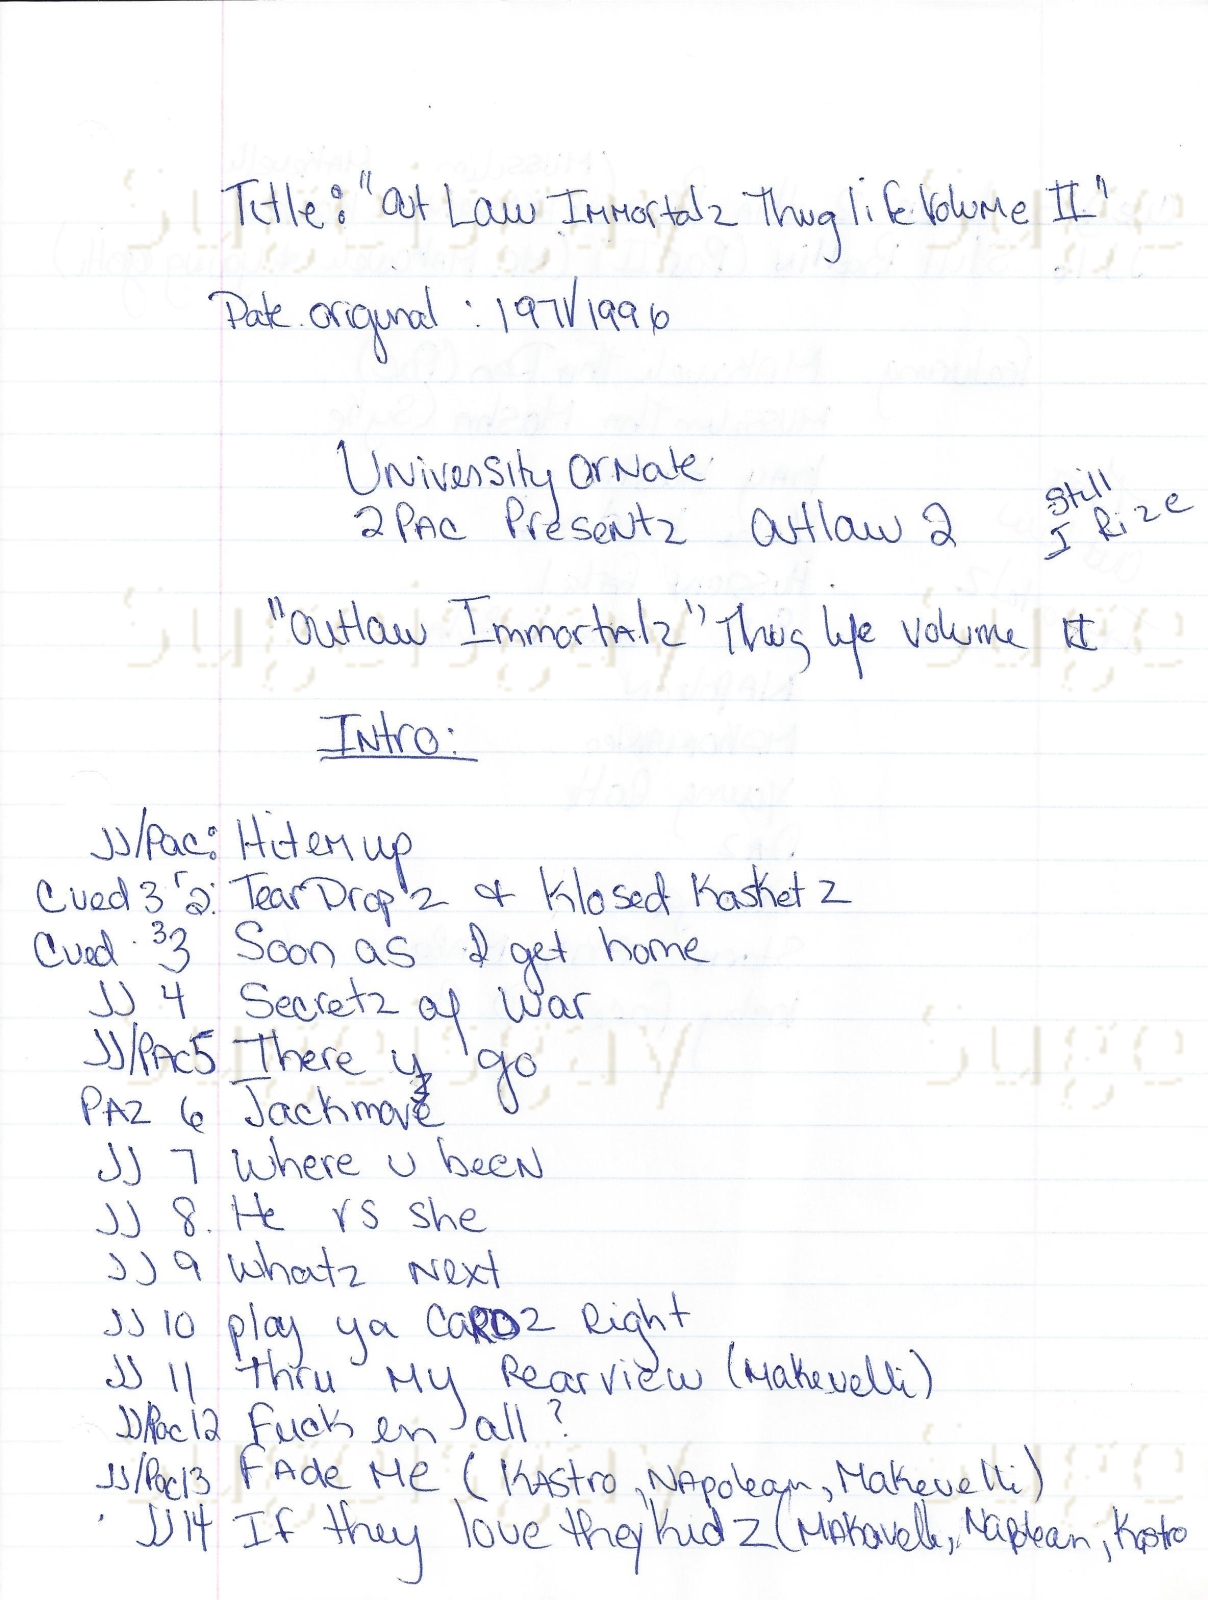 Title: "Out Law Immortalz Thug life Volume II"
Date original : 1971/1996
University Ornate
2PAC Presentz Outlaw 2
Still
I Rize
"Outlaw Immortalz" Thug life volume II
Intro:
JJ/Pac: Hit em up
Cued 3 2: Tear Drop'z & Klosed Kasketz
Cued 3 3 Soon as I get home
JJ 4 Secretz of War
JJ/PAC5 There U go
PAZ 6 Jackmove
JJ 7 Where U been
JJ 8. He vs she
JJ 9 Whatz Next
JJ 10 play ya Cardz Right
JJ 11 thru My Rearview (Makevelli)
JJ/Pac12 Fuck em all ?
JJ/Pac13 Fade Me (Kastro, Napolean, Makevelli)
JJ14 If they love they kidz (Makavelli, Napolean, Kastro